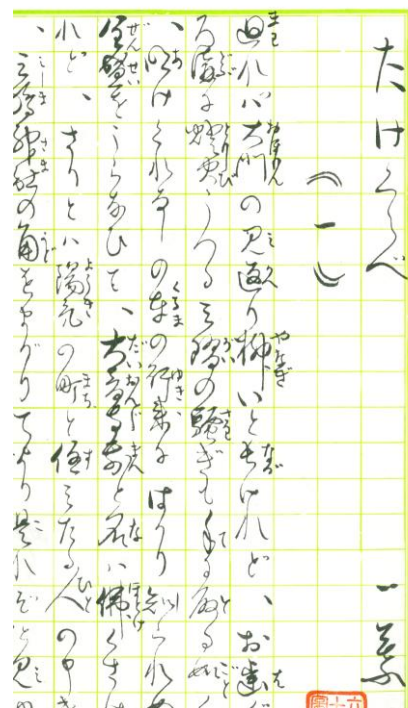 たけくらべ　一葉
（一）
廻れバ大門の見返り柳いと長けれど、お歯ぐ
ろ溝に燈火うつる三階の騒ぎも手に取る如く
、明けくれなしの車の行来にはかり知られぬ
全盛をうらなひて、大音寺前と名ハ佛くさけ
れど、さりとハ陽気の町と住みたる人の申き
、三嶋神社の角をまがりてより是れぞと見ゆ